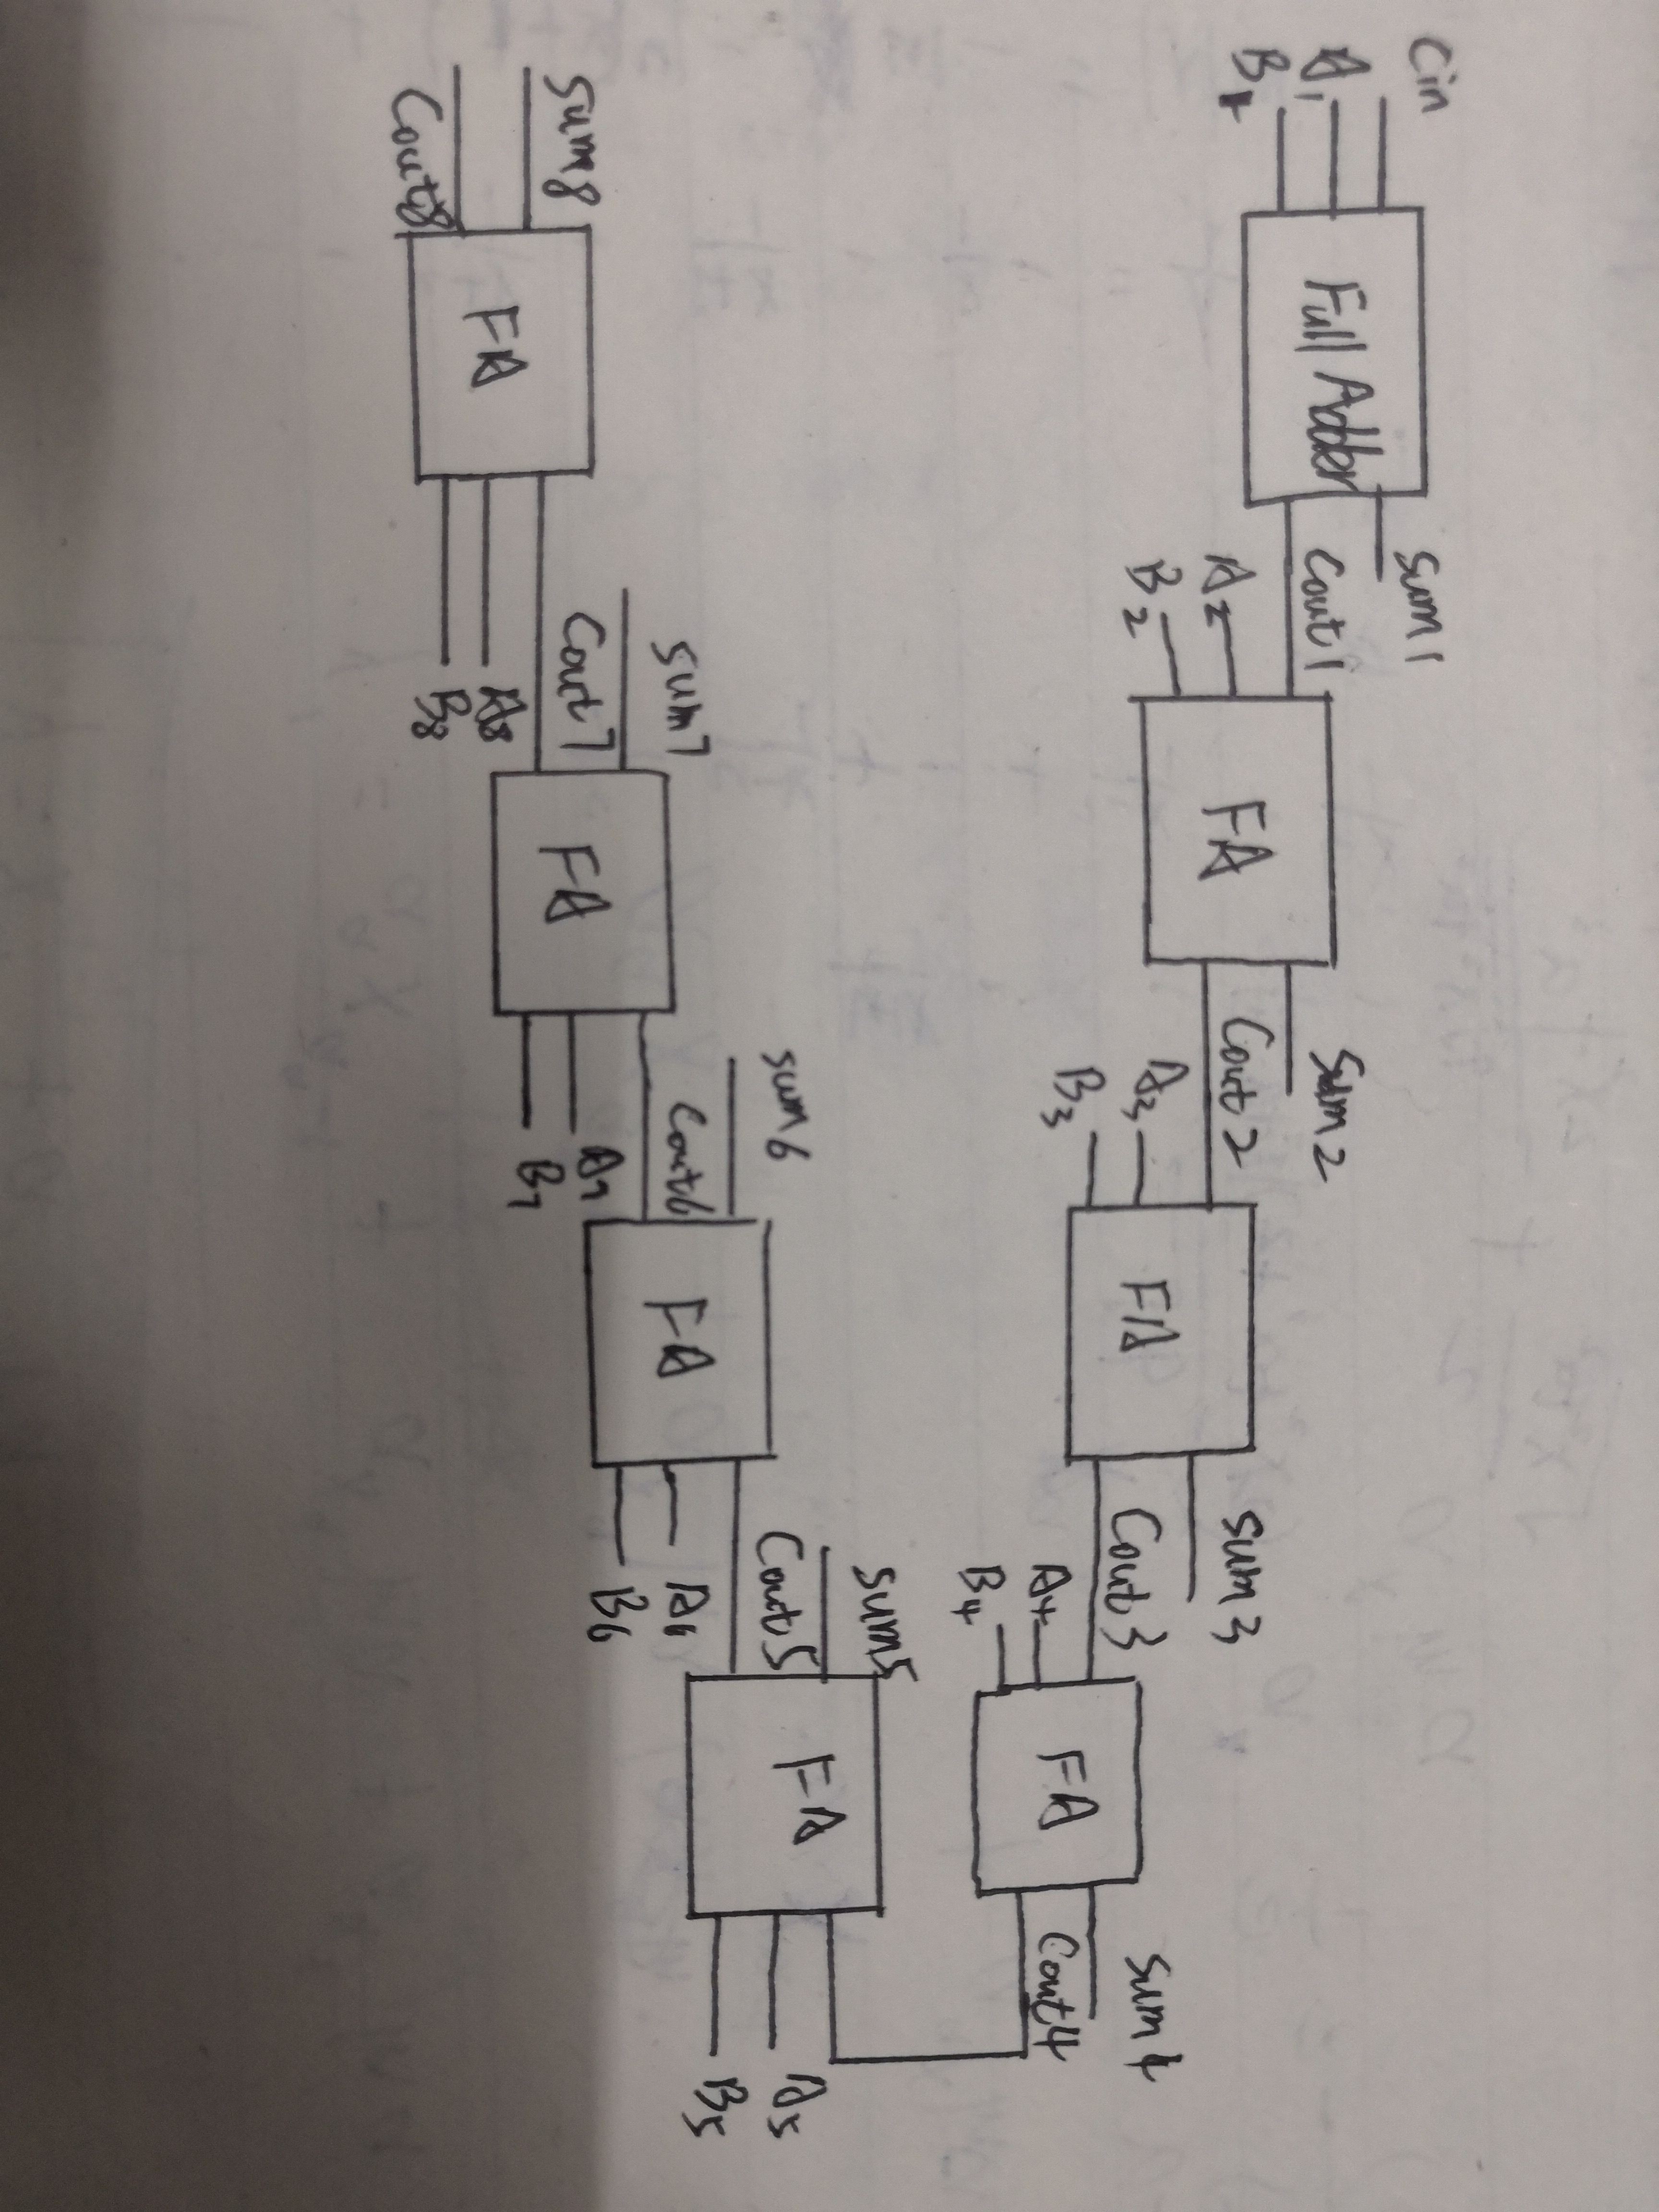 Cin
A1
B1
Full Adder
Sum1
Cout1
A2
B2
FA
Sum2
Cout2
A3
B3
FA
Sum3
Cout3
A4
B4
FA
Sum4
Cout4
A5
B5
FA
Sum5
Cout5
A6
B6
FA
Sum6
Cout6
A7
B7
FA
Sum7
Cout7
A8
B8
FA
Sum8
Cout8